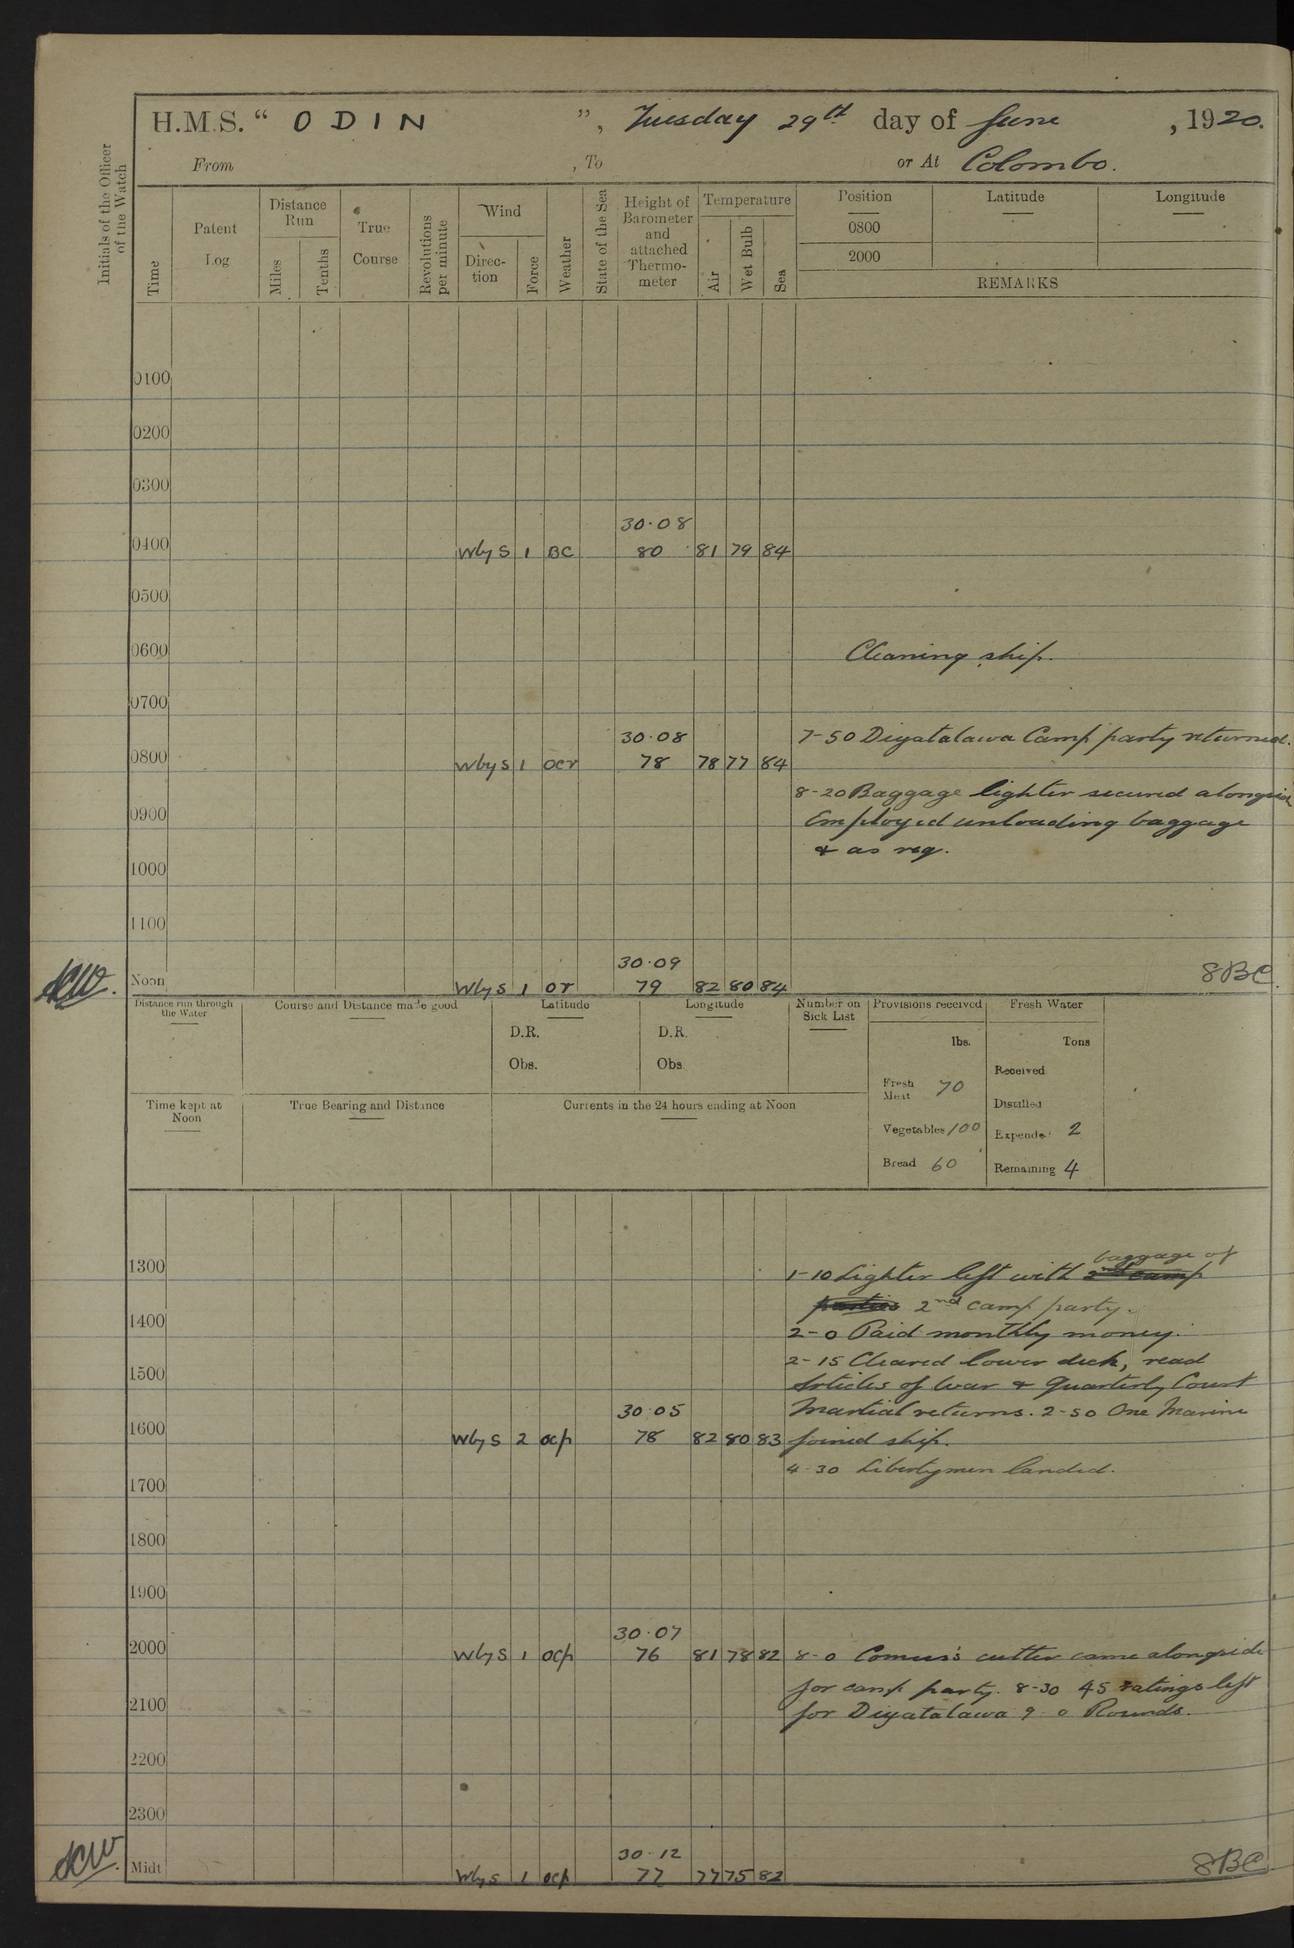 H.M.S. “ ODIN ”, Tuesday 29th day of June, 1920.
From , To or At Colombo.
Initials of the Officer of the Watch
Time
Patent Log
Distance Run
Miles
Tenths
True Course
Revolutions per minute
Wind
Direction
Force
Weather
State of the Sea
Height of Barometer and attached Thermometer
Temperature
Air
Wet Bulb
Sea
Position
Latitude
Longitude
0800
2000
REMARKS
0100
0200
0300
30·08
0400 W by S 1 BC 80 81 79 84
0500
0600 Cleaning ship.
0700
30·08 7-50 Diyatalawa Camp party returned.
0800 W by S 1 ocr 78 78 77 84
8-20 Baggage lighter secured alongside
0900 Employed unloading baggage
& as req.
1000
1100
30·09
Noon W by S 1 or 79 82 80 84
Distance run through the Water
Course and Distance made good
Latitude
D.R.
Obs.
Longitude
D.R.
Obs
Number on Sick List
Provisions received
lbs.
Fresh Meat 70
Vegetables 100
Bread 60
Fresh Water
Tons
Received
Distilled
Expended 2
Remaining 4
Time kept at Noon
True Bearing and Distance
Currents in the 24 hours ending at Noon
baggage of
1300 1-10 Lighter left with 2nd camp
parties 2nd camp party.
1400 2-0 Paid monthly money.
2-15 Cleared lower deck, read
1500 Articles of War & Quarterly Court
30·05 Martial returns. 2-50 One Marine
1600 W by S 2 ocp 78 82 80 83 joined ship.
4-30 Libertymen landed.
1700
1800
1900
30·07
2000 W by S 1 ocp 76 81 78 82 8-0 Comus's cutter came alongside
for camp party. 8-30 45 ratings left
2100 for Diyatalawa 9-0 Rounds.
2200
2300
30·12
Midt W by S 1 ocp 77 77 75 82